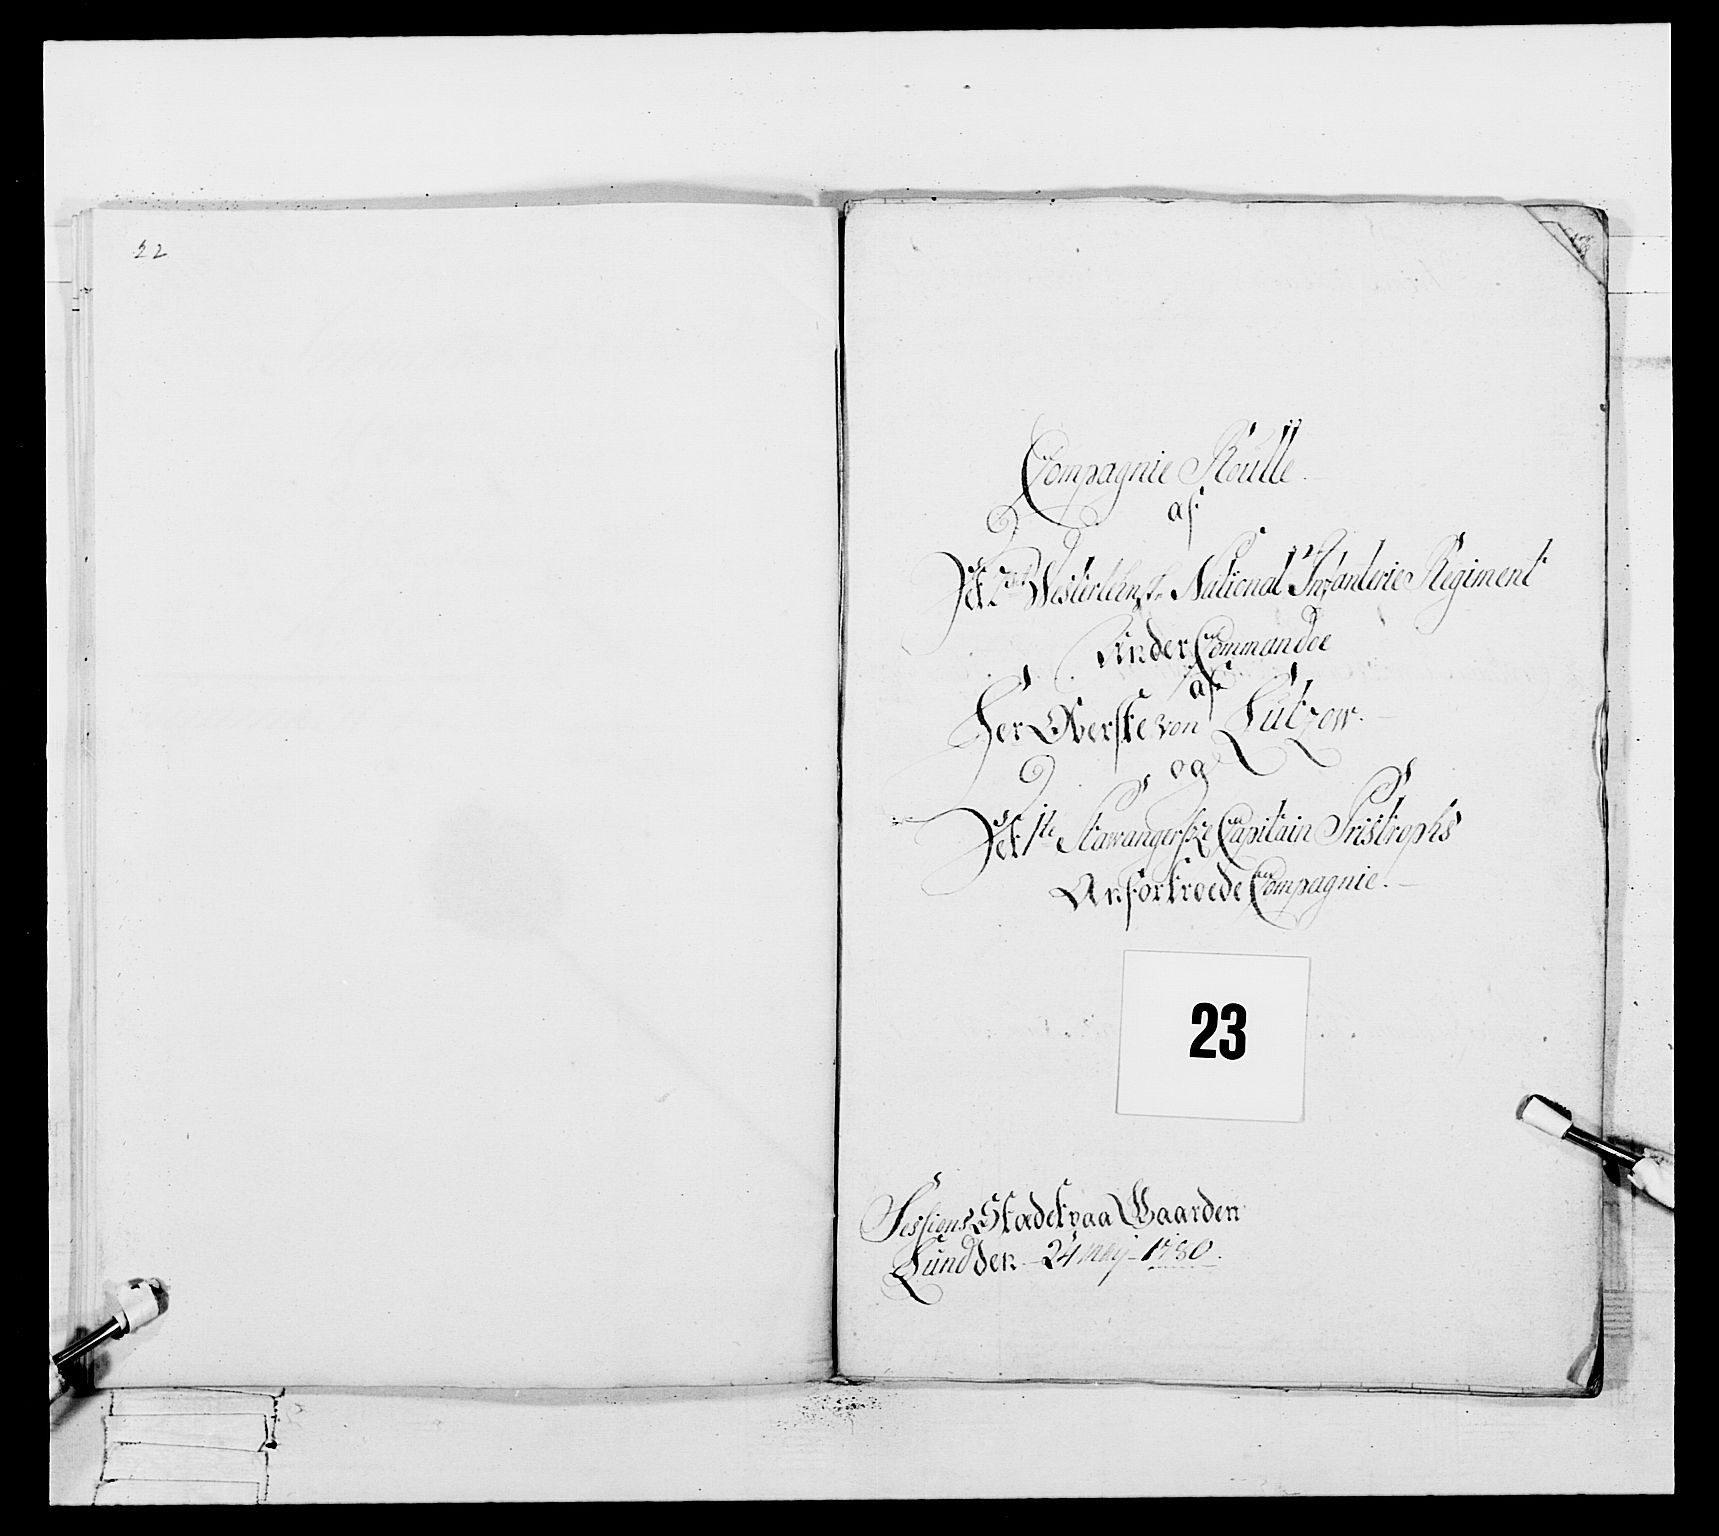 22
Compagnie Roulle
af
Det 2det Westerlehnske National Infanterie Regiment
Under Commandoe
af
Her Oberste von Lützow.
og
Det 1te Stawangerske Capitain Tristrophs
Anfortroede Compagnie.
23
Sessions Stædet paa Gaarden
Lund den 24 Maij 1780.